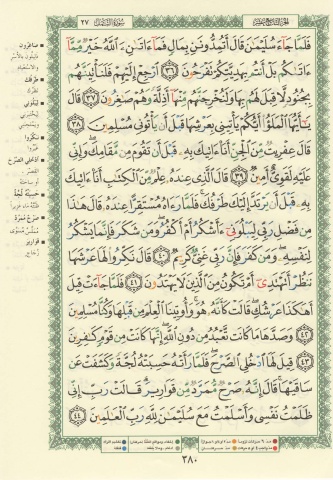 الجزء التاسع عشر
سورة النمل
٢٧
فَلَمَّا جَآءَ سُلَيْمَٰنَ قَالَ أَتُمِدُّونَنِ بِمَالٍ فَمَآ ءَاتَىٰنِۦَ ٱللَّهُ خَيْرٌ مِّمَّآ
ءَاتَىٰكُم بَلْ أَنتُم بِهَدِيَّتِكُمْ تَفْرَحُونَ ٣٦ ٱرْجِعْ إِلَيْهِمْ فَلَنَأْتِيَنَّهُم
بِجُنُودٍ لَّا قِبَلَ لَهُم بِهَا وَلَنُخْرِجَنَّهُم مِّنْهَآ أَذِلَّةً وَهُمْ صَٰغِرُونَ ٣٧ قَالَ
يَٰٓأَيُّهَا ٱلْمَلَؤُا۟ أَيُّكُمْ يَأْتِينِى بِعَرْشِهَا قَبْلَ أَن يَأْتُونِى مُسْلِمِينَ
٣٨ قَالَ عِفْرِيتٌ مِّنَ ٱلْجِنِّ أَنَا۠ ءَاتِيكَ بِهِۦ قَبْلَ أَن تَقُومَ مِن مَّقَامِكَ وَإِنِّى
عَلَيْهِ لَقَوِىٌّ أَمِينٌ ٣٩ قَالَ ٱلَّذِى عِندَهُۥ عِلْمٌ مِّنَ ٱلْكِتَٰبِ أَنَا۠ ءَاتِيكَ
بِهِۦ قَبْلَ أَن يَرْتَدَّ إِلَيْكَ طَرْفُكَ فَلَمَّا رَءَاهُ مُسْتَقِرًّا عِندَهُۥ قَالَ هَٰذَا
مِن فَضْلِ رَبِّى لِيَبْلُوَنِىٓ ءَأَشْكُرُ أَمْ أَكْفُرُ وَمَن شَكَرَ فَإِنَّمَا يَشْكُرُ
لِنَفْسِهِۦ وَمَن كَفَرَ فَإِنَّ رَبِّى غَنِىٌّ كَرِيمٌ ٤٠ قَالَ نَكِّرُوا۟ لَهَا عَرْشَهَا
نَنظُرْ أَتَهْتَدِىٓ أَمْ تَكُونُ مِنَ ٱلَّذِينَ لَا يَهْتَدُونَ ٤١ فَلَمَّا جَآءَتْ قِيلَ
أَهَٰكَذَا عَرْشُكِ قَالَتْ كَأَنَّهُۥ هُوَ وَأُوتِينَا ٱلْعِلْمَ مِن قَبْلِهَا وَكُنَّا مُسْلِمِينَ
٤٢ وَصَدَّهَا مَا كَانَت تَّعْبُدُ مِن دُونِ ٱللَّهِ إِنَّهَا كَانَتْ مِن قَوْمٍ كَٰفِرِينَ
٤٣ قِيلَ لَهَا ٱدْخُلِى ٱلصَّرْحَ فَلَمَّا رَأَتْهُ حَسِبَتْهُ لُجَّةً وَكَشَفَتْ عَن
سَاقَيْهَا قَالَ إِنَّهُۥ صَرْحٌ مُّمَرَّدٌ مِّن قَوَارِيرَ قَالَتْ رَبِّ إِنِّى
ظَلَمْتُ نَفْسِى وَأَسْلَمْتُ مَعَ سُلَيْمَٰنَ لِلَّهِ رَبِّ ٱلْعَٰلَمِينَ ٤٤
صاغرون
طرفك
ليبلوني
نكروا
ادخلي الصرح
حسبته لجة
صرح ممرد
قوارير
زجاج
٣٨٠